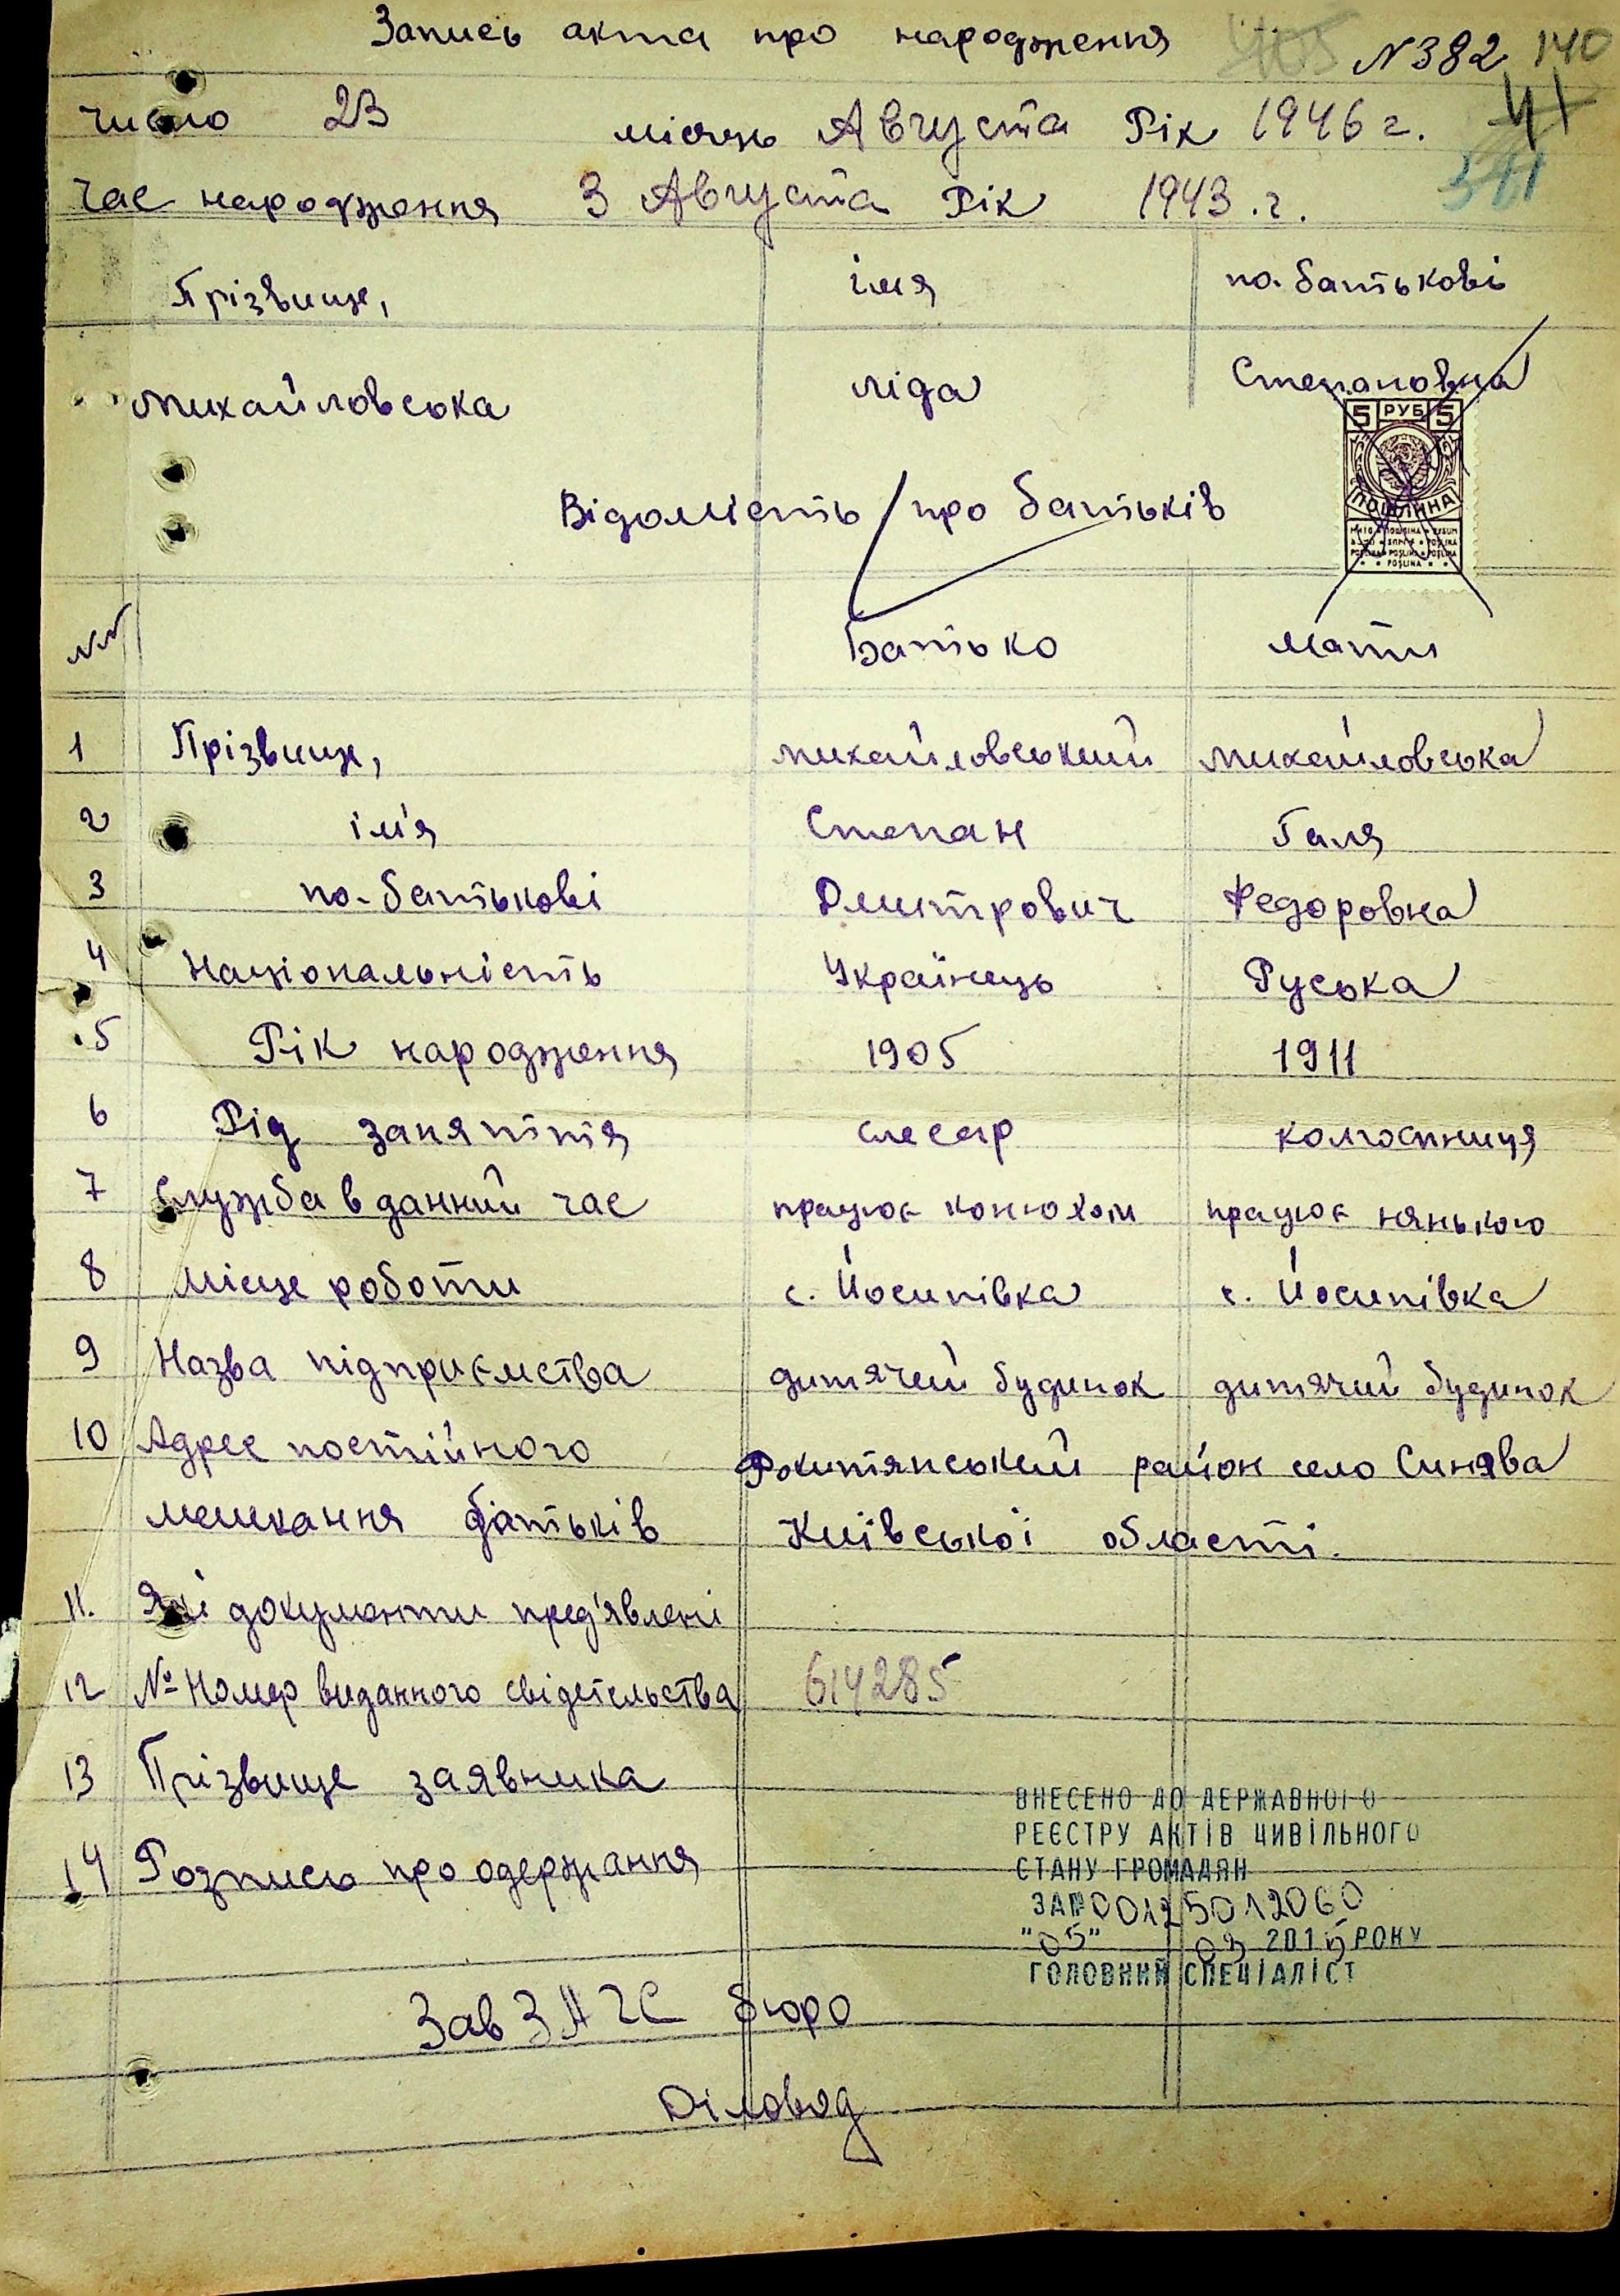 Запись акта про народження N 382 140
число 23 місяць Августа Рік 1946 г. 41
341
Час народження 3 Августа Рік 1943.г.
Прізвище, імя по-батькові
Михайловська Ліда Степановна
5 РУБ 5
ПОШЛИНА
Відомість про батьків
NN Батько Мати
1 Прізвище, Михайловський Михайловська
2 ім'я Степан Галя
3 по-батькові Дмитрович Федоровна
4 Національність Українець Руська
5 Рік народження 1905 1911
6 Рід заняття слесар колгоспниця
7 Служба в данний час працює конюхом працює нянькою
8 Місце роботи с. Йосипівка с. Йосипівка
9 Назва підприємства дитячий будинок дитячий будинок
10 Адрес постійного Рокитянський район село Синява
мешкання батьків Київської області.
11. Які документи пред'явлені
12 № Номер виданного свідетельства 614285
13 Прізвище заявника
14 Розпись про одержання
ВНЕСЕНО ДО ДЕРЖАВНОГО
РЕЄСТРУ АКТІВ ЦИВІЛЬНОГО
СТАНУ ГРОМАДЯН
ЗА № 00125012060
"05" 03 2015 РОКУ
ГОЛОВНИЙ СПЕЦІАЛІСТ
Зав ЗАГС бюро
Діловод